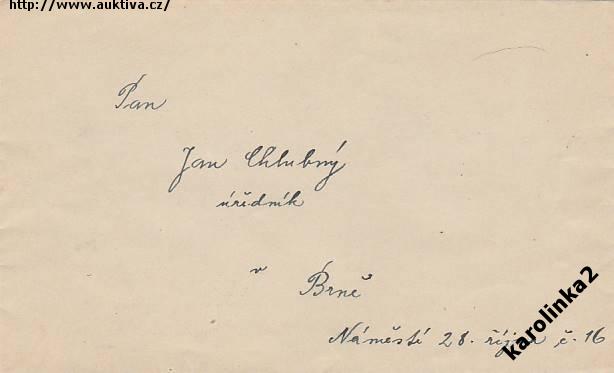 http://www.auktiva.cz/
Pan
Jan Chlubný
úředník
v
Brně
Náměstí 28. října č. 16
karolinka2